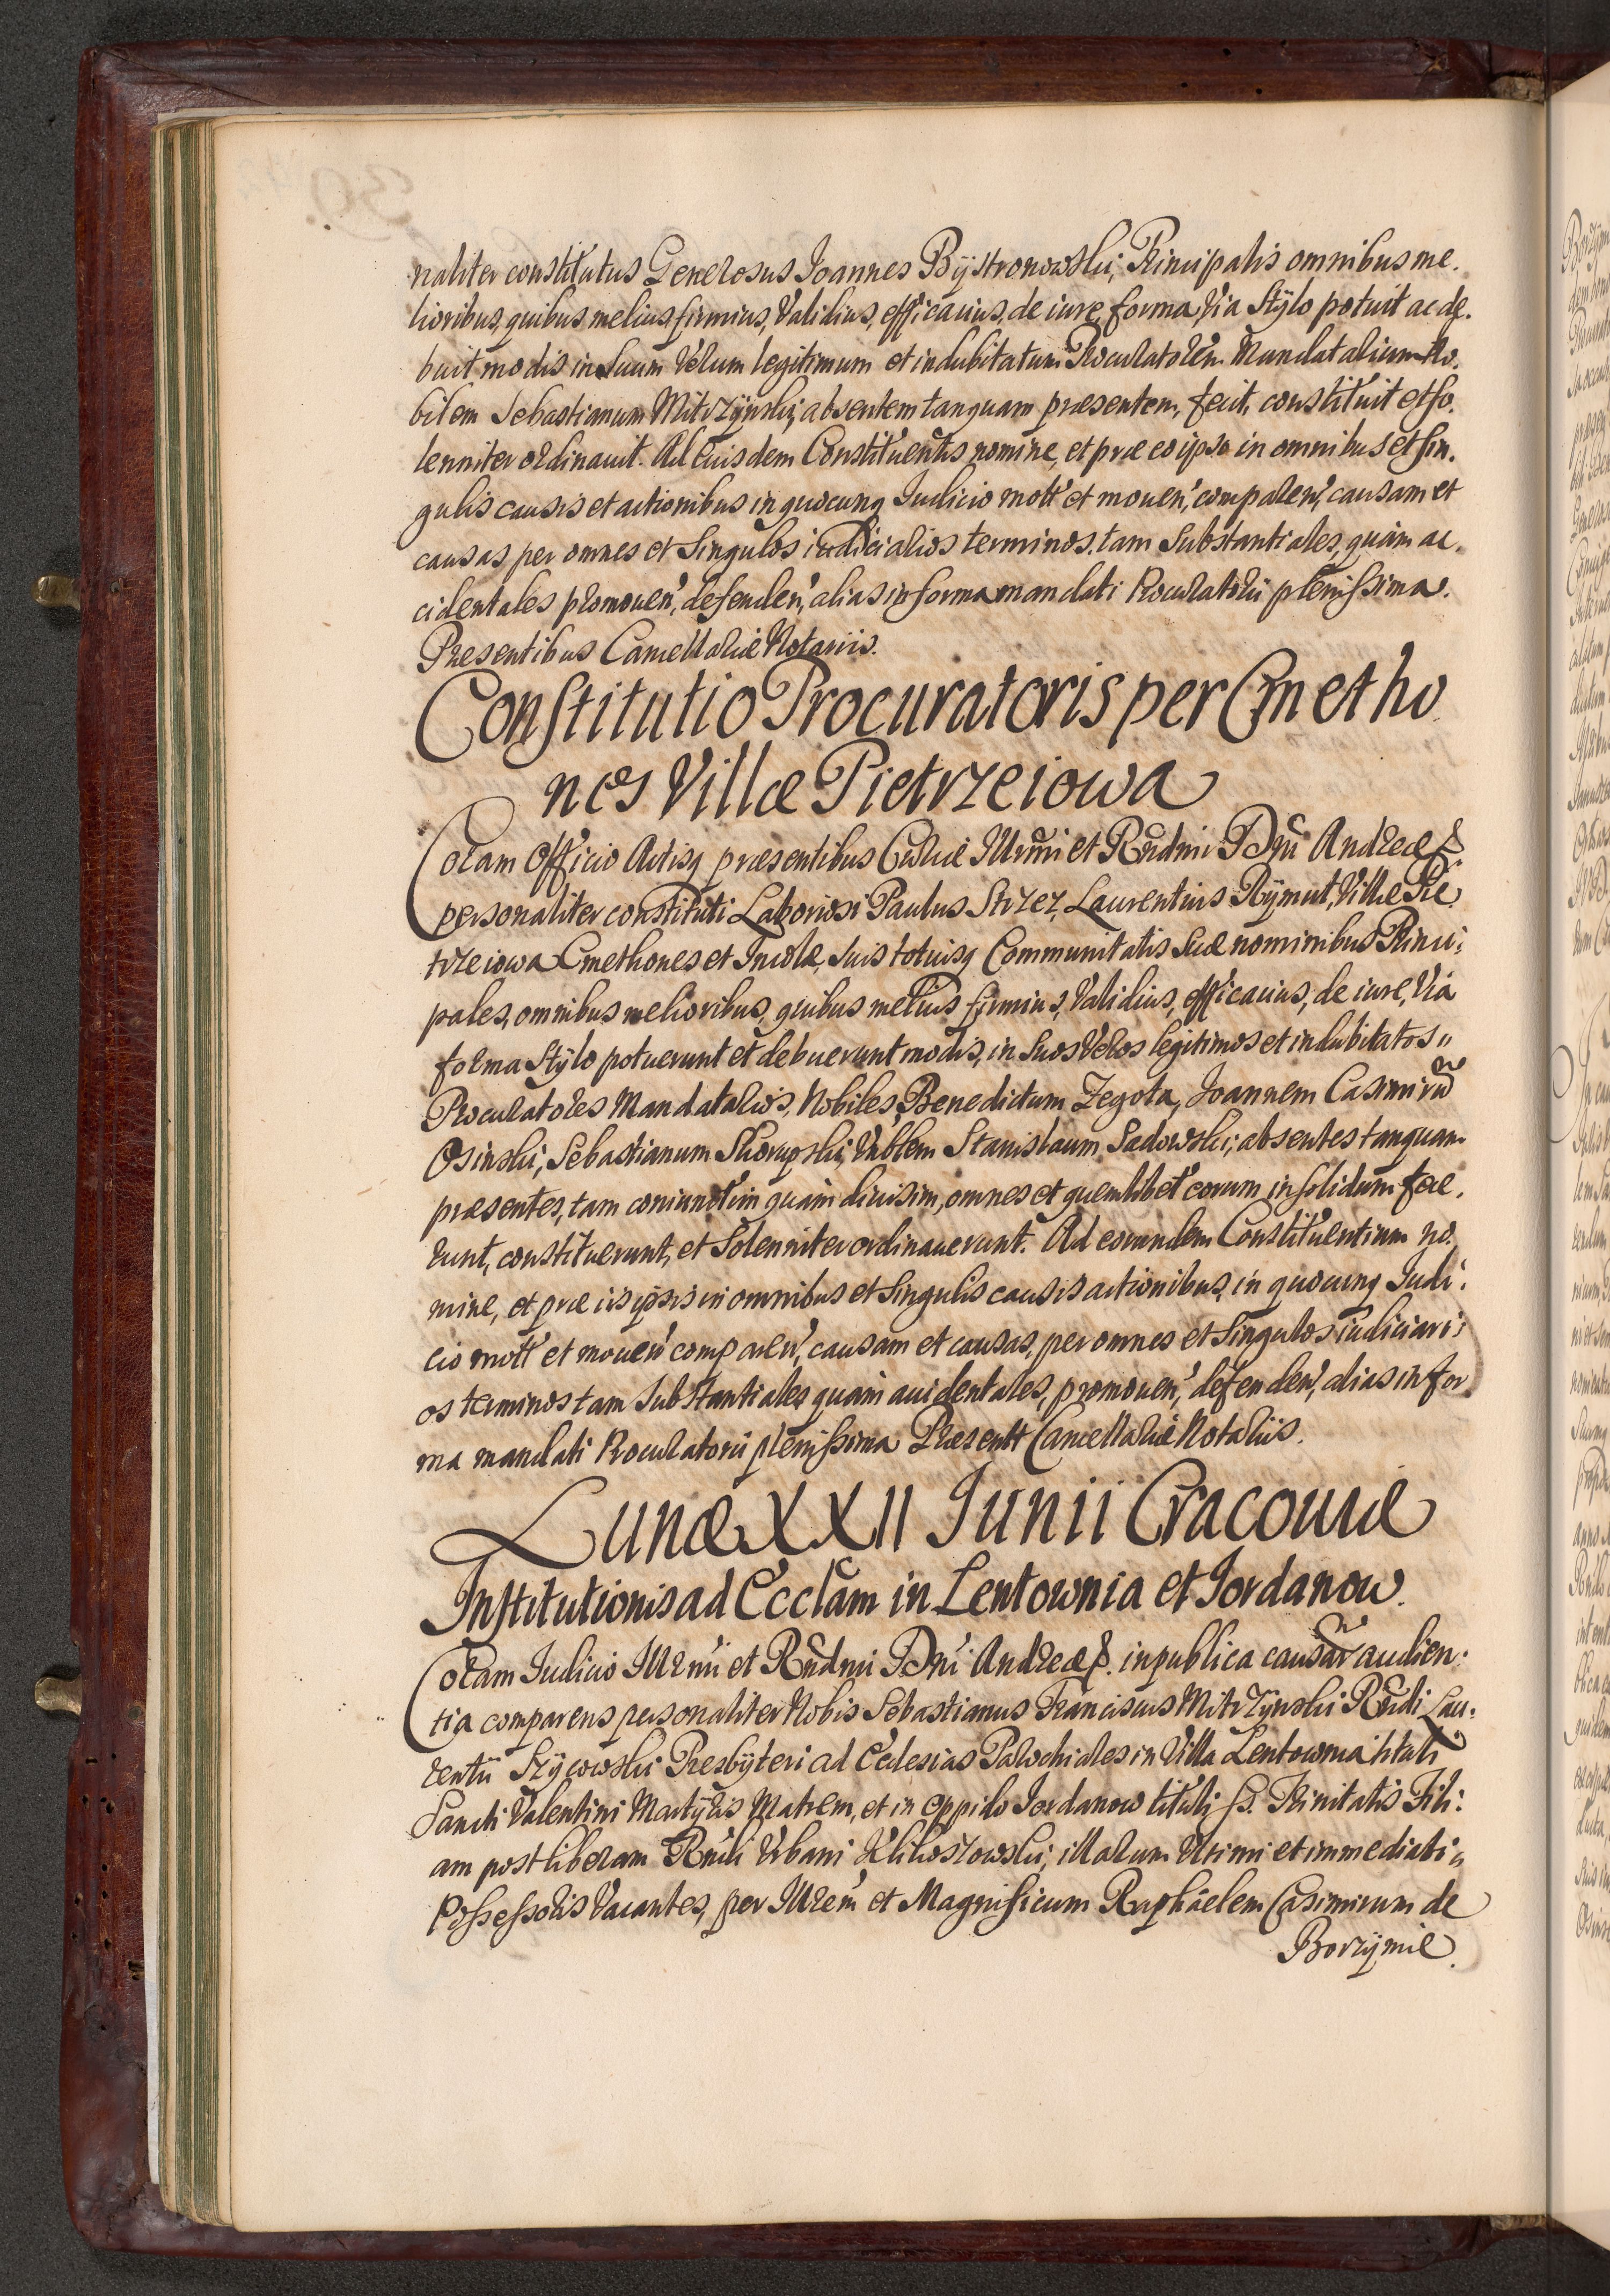 naliter constitutus Generosus Joannes Byÿstronowski, Principalis omnibus me.
lioribus, quibus melius, firmius, Validius, efficacius, de iure, forma, Via Stÿlo potuit ac de.
buit modis in Suum Verum legitimum et indubitatum Procuratorem Mandatarium No.
bilem Sebastianum Mitrzÿnski, absentem tanquam praesentem, fecit, constituit et so.
lenniter ordinauit. Ad Euisdem Constituentis nomine, et prae eo ipso in omnibus et sin.
gulis causis et actionibus in quocunq Judicio mott' et mouen', comparen', causam et
causas per omnes et Singulos iudiciarios terminos, tam Substantiales, quàm ac.
cidentales promouen', defenden', alias in forma mandati Procuratorii plenissima.
Presentibus Cancellariæ Notariis.
Constitutio Procuratoris per Cmetho
nes Villæ Pietrzeiowa
Coram Officio Actisq praesentibus Curiæ Illrmi et Rndmi Dni Andreæ &.
personaliter constituti Laboriosi Paulus Strzez, Laurentius Rÿmut, Villæ Pie
trzeiowa Cmethones et Incolæ, Suis totiusq Communitatis Suæ nominibus Princi:
pales, omnibus melioribus, quibus melius firmius, Validius, efficacius, de iure, Via
forma Stÿlo potuerunt et debuerunt modis, in Suos Veros legitimos et indubitatos
Procuratores Mandatarios, Nobiles, Benedictum Zegota, Joannem Casimirū
Osinski, Sebastianum Skorupski, Stanislaum Sadowski, absentes tanquam
praesentes, tam coniunctim quàm diuisim, omnes et quemlibet eorum insolidum fece.
runt, constituerunt, et Solenniter ordinauerunt. Ad eorundem Constituentium no.
mine, et prae iis ipsis in omnibus et Singulis causis actionibus, in quocunq Judi:
cio mott' et mouen' comparen', causam et causas, per omnes et Singulos iudiciari:
os terminos tam Substantiales quàm accidentales, promouen', defenden', alias in for
ma mandati Procuratorii plenissima Presentt Cancellariæ Notariis.
Lunæ XXII Junii Cracouiæ
Institutionis ad Ecclam in Lentownia et Jordanow.
Coram Judicio Illrmi et Rndmi Dni Andreæ &. in publica causar audien:
tia comparens personaliter Nobis Sebastianus Franciscus Mitrzÿnski Rndi Lau:
rentii Stÿcowski Presbÿteri ad Ecclesias Parochiales in Villa Lentownia tituli
Sancti Valentini Martÿris Matrem, et in Oppido Jordanow tituli SS. Trinitatis Fili:
am post liberam Rndi Vrbani illarum Vltimi et immediati
Possessoris Vacantes, per Illrem et Magnificum Raphaelem Casimirum de
Borzÿmie